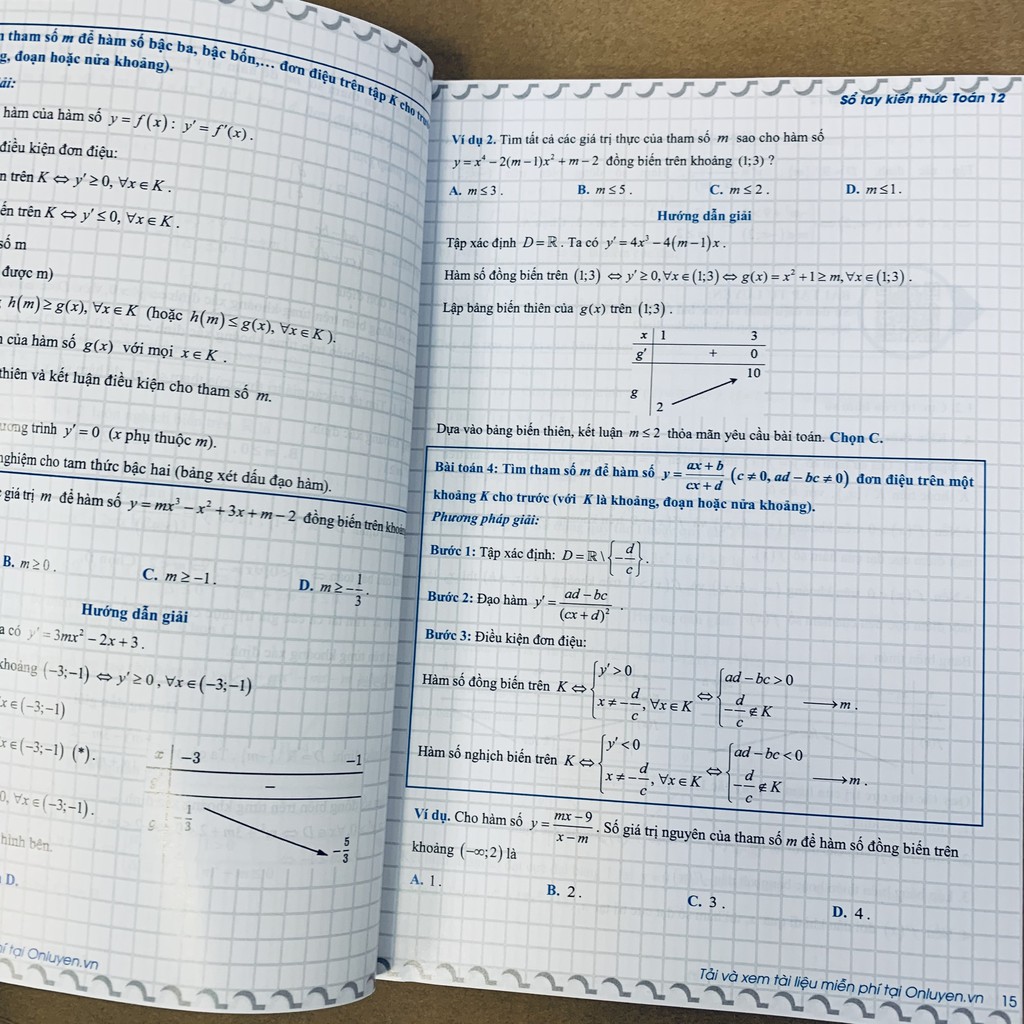 tham số m để hàm số bậc ba, bậc bốn,... đơn điệu trên tập K cho
đoạn hoặc nửa khoảng).
hàm của hàm số y = f(x): y' = f'(x).
điều kiện đơn điệu:
trên K ⇔ y' ≥ 0, ∀x ∈ K.
trên K ⇔ y' ≤ 0, ∀x ∈ K.
số m
được m)
h(m) ≥ g(x), ∀x ∈ K (hoặc h(m) ≤ g(x), ∀x ∈ K).
của hàm số g(x) với mọi x ∈ K.
thiên và kết luận điều kiện cho tham số m.
trình y' = 0 (x phụ thuộc m).
nghiệm cho tam thức bậc hai (bảng xét dấu đạo hàm).
giá trị m để hàm số y = mx³ − x² + 3x + m − 2 đồng biến trên
B. m ≥ 0.
C. m ≥ −1.
D. m ≥ −1/3.
Hướng dẫn giải
có y' = 3mx² − 2x + 3.
khoảng (−3;−1) ⇔ y' ≥ 0, ∀x ∈ (−3;−1)
x ∈ (−3;−1)
x ∈ (−3;−1) (*).
x −3 −1
−
−1/3
−5/3
0, ∀x ∈ (−3;−1).
hình bên.
D.
tại Onluyen.vn
Sổ tay kiến thức Toán 12
Ví dụ 2. Tìm tất cả các giá trị thực của tham số m sao cho hàm số
y = x⁴ − 2(m−1)x² + m − 2 đồng biến trên khoảng (1;3) ?
A. m ≤ 3. B. m ≤ 5. C. m ≤ 2. D. m ≤ 1.
Hướng dẫn giải
Tập xác định D = ℝ. Ta có y' = 4x³ − 4(m−1)x.
Hàm số đồng biến trên (1;3) ⇔ y' ≥ 0, ∀x ∈ (1;3) ⇔ g(x) = x² + 1 ≥ m, ∀x ∈ (1;3).
Lập bảng biến thiên của g(x) trên (1;3).
x 1 3
g' + 0
10
g
2
Dựa vào bảng biến thiên, kết luận m ≤ 2 thỏa mãn yêu cầu bài toán. Chọn C.
Bài toán 4: Tìm tham số m để hàm số y = (ax+b)/(cx+d) (c ≠ 0, ad − bc ≠ 0) đơn điệu trên một
khoảng K cho trước (với K là khoảng, đoạn hoặc nửa khoảng).
Phương pháp giải:
Bước 1: Tập xác định: D = ℝ \ {−d/c}.
Bước 2: Đạo hàm y' = (ad − bc)/(cx+d)².
Bước 3: Điều kiện đơn điệu:
Hàm số đồng biến trên K ⇔ { y' > 0; x ≠ −d/c, ∀x ∈ K ⇔ { ad − bc > 0; −d/c ∉ K ⟶ m.
Hàm số nghịch biến trên K ⇔ { y' < 0; x ≠ −d/c, ∀x ∈ K ⇔ { ad − bc < 0; −d/c ∉ K ⟶ m.
Ví dụ. Cho hàm số y = (mx − 9)/(x − m). Số giá trị nguyên của tham số m để hàm số đồng biến trên
khoảng (−∞;2) là
A. 1. B. 2. C. 3. D. 4.
Tải và xem tài liệu miễn phí tại Onluyen.vn 15